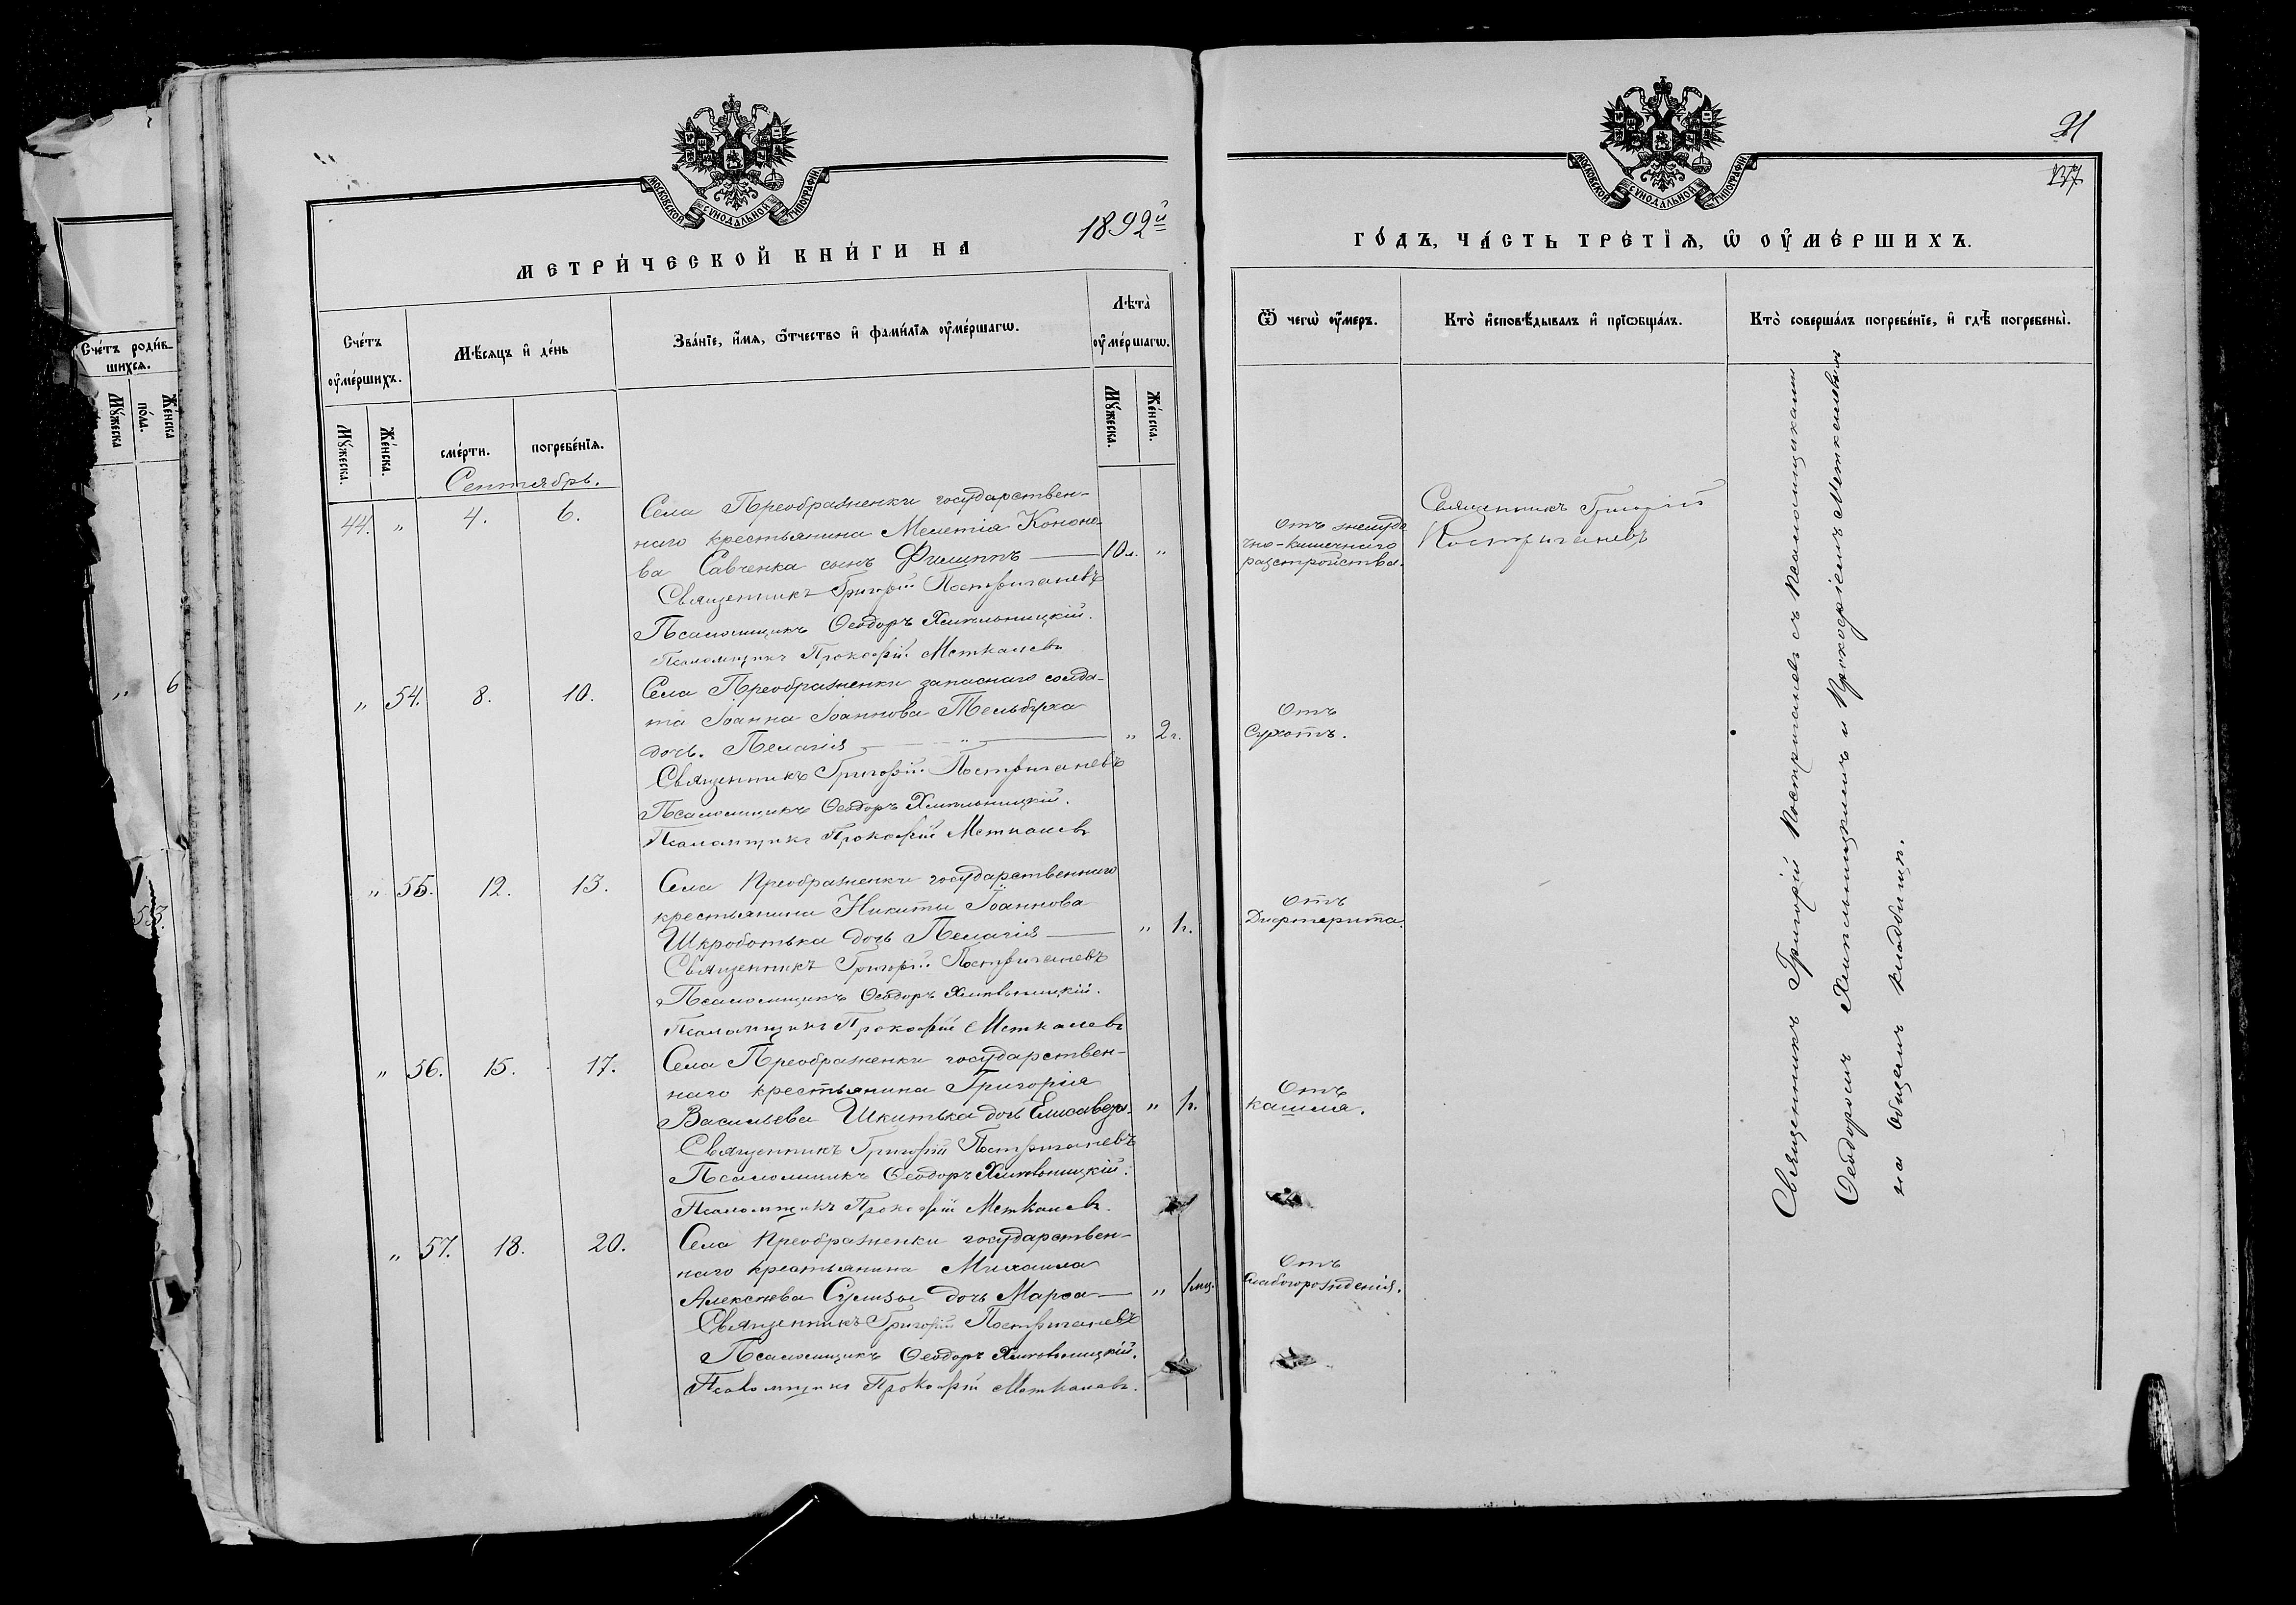 МОСКОВСКОЙ СУНОДАЛЬНОЙ ТИПОГРАФІИ
МЕТРИ́ЧЕСКОЙ КНИ́ГИ НА 1892й
Сче́тъ оу҆ме́ршихъ.
Мꙋ́жеска.
Же́нска.
Мѣ́сяцъ и҆ де́нь
сме́рти.
погребе́нїѧ.
Зва́нїе, и҆́мѧ, ѻ҆́тчество и҆ фами́лїѧ оу҆ме́ршагѡ.
Лѣ́та оу҆ме́ршагѡ.
Мꙋ́жеска.
Же́нска.
Сентябрь.
44. " 4. 6.
Села Преображенки государствен-
наго крестьянина Мелетія Кононо-
ва Савченка сынъ Филиппъ — 10л. "
Священникъ Григорій Постригачевъ
Псаломщикъ Ѳеодоръ Хмѣльницкій.
Псаломщикъ Прокофій Меткалевъ
" 54. 8. 10.
Села Преображенки запаснаго солда-
та Іоанна Іоаннова Тельбуха
дочь. Пелагія — " 2г.
Священникъ Григорій Постригачевъ
Псаломщикъ Ѳеодоръ Хмѣльницкій.
Псаломщикъ Прокофій Меткалевъ
" 55. 12. 13.
Села Преображенки государственнаго
крестьянина Никиты Іоаннова
Шкроботька дочь Пелагія — " 1г.
Священникъ Григорій Постригачевъ
Псаломщикъ Ѳеодоръ Хмѣльницкій.
Псаломщикъ Прокофій Меткалевъ
" 56. 15. 17.
Села Преображенки государствен-
наго крестьянина Григорія
Васильева Шкитька дочь " 1г.
Священникъ Григорій Постригачевъ
Псаломщикъ Ѳеодоръ Хмѣльницкій.
Псаломщикъ Прокофій Меткалевъ.
" 57. 18. 20.
Села Преображенки государствен-
наго крестьянина Михаила
Алексѣева Сулизы дочь Марѳа — " 1мц.
Священникъ Григорій Постригачевъ
Псаломщикъ Ѳеодоръ Хмѣльницкій.
Псаломщикъ Прокофій Меткалевъ.
Сче́тъ роди́в-
шихсѧ.
Мꙋ́жеска
по́ла.
Же́нска
" 6
53.
МОСКОВСКОЙ СУНОДАЛЬНОЙ ТИПОГРАФІИ
21
137
ГО́ДЪ, ЧА́СТЬ ТРЕ́ТЇѦ, Ѡ҆ ОУ҆МЕ́РШИХЪ.
Ѿ чегѡ̀ оу҆́меръ.
Кто̀ и҆сповѣ́дывалъ и҆ прїѡбща́лъ.
Кто̀ соверша́лъ погребе́нїе, и҆ гдѣ̀ погребены̀.
Отъ желудо
чно-кишечнаго
разстройства.
Священникъ Григорій
Постригачевъ
Отъ
Сухотъ.
Отъ
Дифтерита.
Отъ
кашля.
Отъ
Слаборожденія.
Священникъ Григорій Постригачевъ съ Псаломщиками
Ѳеодоромъ Хмѣльницкимъ и Прокофіемъ Меткалевымъ
на общемъ кладбищѣ.